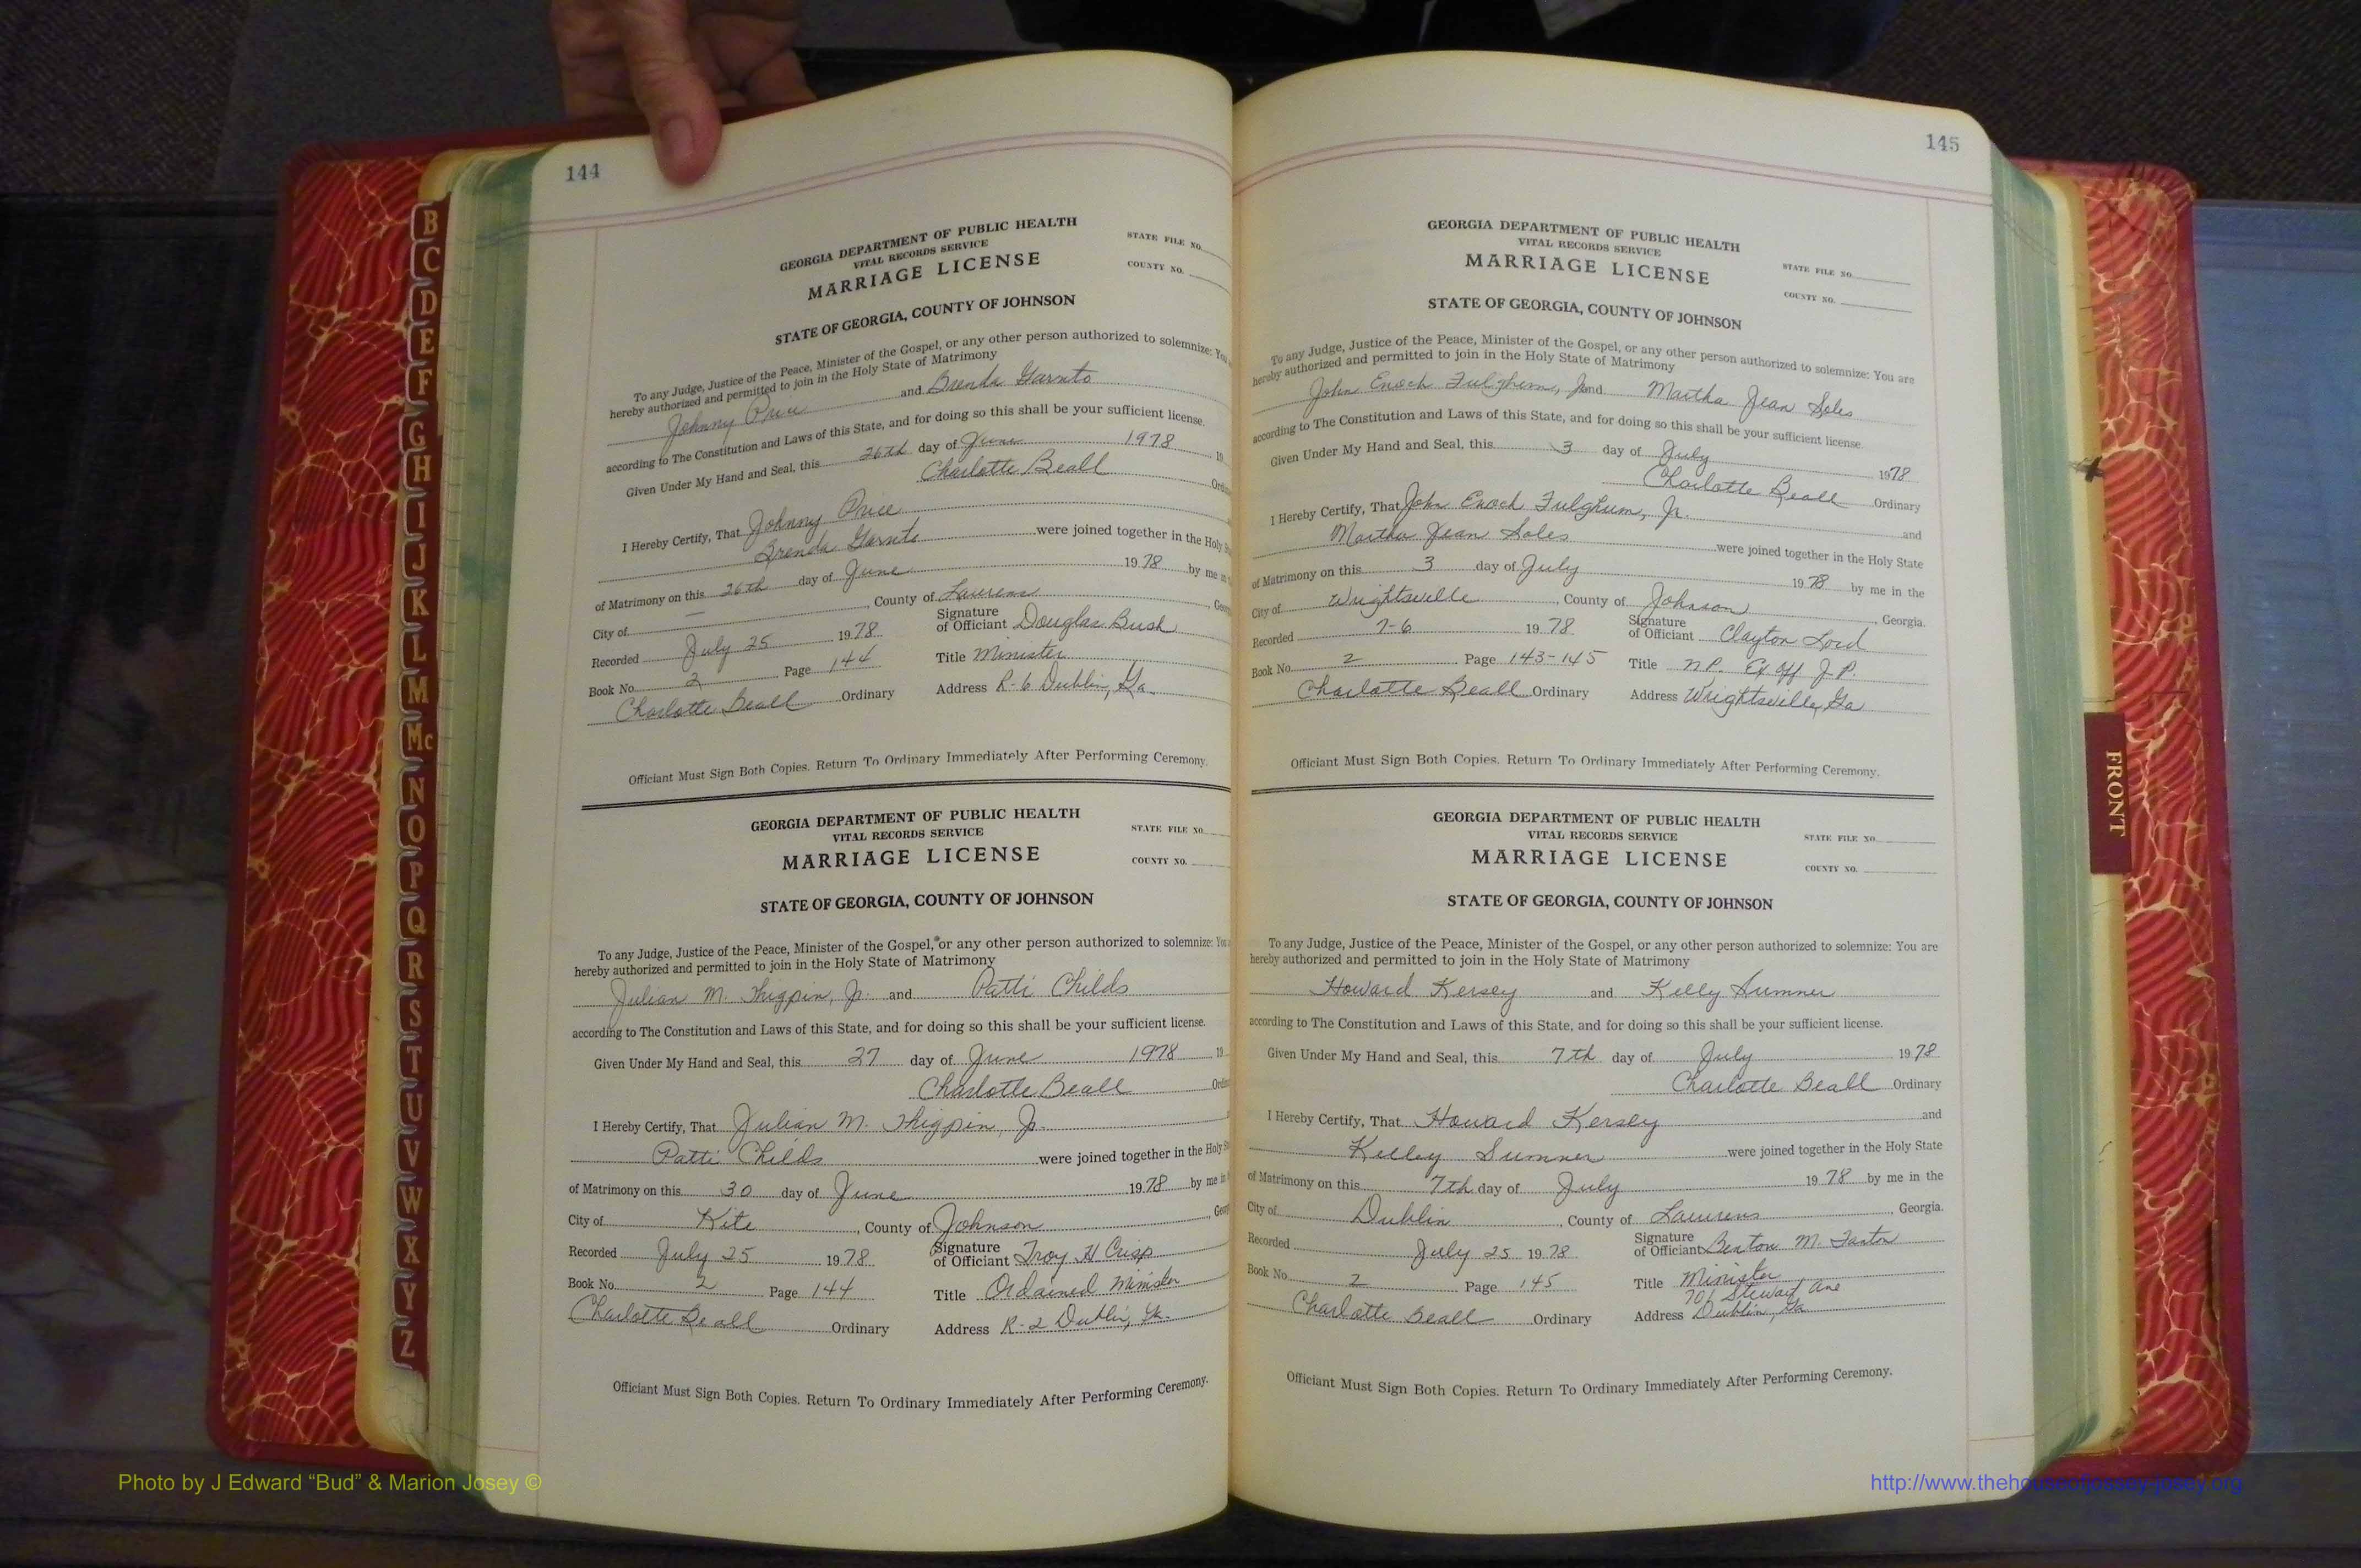 144
GEORGIA DEPARTMENT OF PUBLIC HEALTH
VITAL RECORDS SERVICE
MARRIAGE LICENSE
STATE FILE NO.
COUNTY NO.
STATE OF GEORGIA, COUNTY OF JOHNSON
To any Judge, Justice of the Peace, Minister of the Gospel, or any other person authorized to solemnize: You
hereby authorized and permitted to join in the Holy State of Matrimony
Johnny Price and Brenda Garnto
according to The Constitution and Laws of this State, and for doing so this shall be your sufficient license.
Given Under My Hand and Seal, this 26th day of June 1978 19
Charlotte Beall
I Hereby Certify, That Johnny Price
Brenda Garnto were joined together in the Holy
of Matrimony on this 26th day of June 1978 by me in
City of — , County of Laurens
Recorded July 25 1978 Signature of Officiant Douglas Bush
Book No. 2 Page 144 Title Minister
Charlotte Beall Ordinary Address R-6 Dublin, Ga.
Officiant Must Sign Both Copies. Return To Ordinary Immediately After Performing Ceremony.
GEORGIA DEPARTMENT OF PUBLIC HEALTH
VITAL RECORDS SERVICE
MARRIAGE LICENSE
STATE FILE NO.
COUNTY NO.
STATE OF GEORGIA, COUNTY OF JOHNSON
To any Judge, Justice of the Peace, Minister of the Gospel, or any other person authorized to solemnize: You
hereby authorized and permitted to join in the Holy State of Matrimony
Julian M. Thigpin, Jr. and Patti Childs
according to The Constitution and Laws of this State, and for doing so this shall be your sufficient license.
Given Under My Hand and Seal, this 27 day of June 1978 19
Charlotte Beall
I Hereby Certify, That Julian M. Thigpin, Jr.
Patti Childs were joined together in the Holy
of Matrimony on this 30 day of June 1978 by me in
City of Kite , County of Johnson
Recorded July 25 1978 Signature of Officiant Troy H Crisp
Book No. 2 Page 144 Title Ordained Minister
Charlotte Beall Ordinary Address R-2 Dublin, Ga.
Officiant Must Sign Both Copies. Return To Ordinary Immediately After Performing Ceremony.
145
GEORGIA DEPARTMENT OF PUBLIC HEALTH
VITAL RECORDS SERVICE
MARRIAGE LICENSE
STATE FILE NO.
COUNTY NO.
STATE OF GEORGIA, COUNTY OF JOHNSON
To any Judge, Justice of the Peace, Minister of the Gospel, or any other person authorized to solemnize: You are
hereby authorized and permitted to join in the Holy State of Matrimony
John Enoch Fulghum, Jr. and Martha Jean Soles
according to The Constitution and Laws of this State, and for doing so this shall be your sufficient license.
Given Under My Hand and Seal, this 3 day of July 1978
Charlotte Beall Ordinary
I Hereby Certify, That John Enoch Fulghum, Jr. and
Martha Jean Soles were joined together in the Holy State
of Matrimony on this 3 day of July 1978 by me in the
City of Wrightsville , County of Johnson , Georgia.
Recorded 7-6 1978 Signature of Officiant Clayton Lord
Book No. 2 Page 143-145 Title N.P. Ex Off J.P.
Charlotte Beall Ordinary Address Wrightsville, Ga
Officiant Must Sign Both Copies. Return To Ordinary Immediately After Performing Ceremony.
GEORGIA DEPARTMENT OF PUBLIC HEALTH
VITAL RECORDS SERVICE
MARRIAGE LICENSE
STATE FILE NO.
COUNTY NO.
STATE OF GEORGIA, COUNTY OF JOHNSON
To any Judge, Justice of the Peace, Minister of the Gospel, or any other person authorized to solemnize: You are
hereby authorized and permitted to join in the Holy State of Matrimony
Howard Kersey and Kelly Sumner
according to The Constitution and Laws of this State, and for doing so this shall be your sufficient license.
Given Under My Hand and Seal, this 7th day of July 1978
Charlotte Beall Ordinary
I Hereby Certify, That Howard Kersey and
Kelley Sumner were joined together in the Holy State
of Matrimony on this 7th day of July 1978 by me in the
City of Dublin , County of Laurens , Georgia.
Recorded July 25 1978 Signature of Officiant M.
Book No. 2 Page 145 Title Minister
701 Stewart Ave
Charlotte Beall Ordinary Address Dublin, Ga
Officiant Must Sign Both Copies. Return To Ordinary Immediately After Performing Ceremony.
B
C
D
E
F
G
H
I
J
K
L
M
Mc
N
O
P
Q
R
S
T
U
V
W
X
Y
Z
FRONT
Photo by J Edward “Bud” & Marion Josey ©
http://www.thehouseofjossey-josey.org